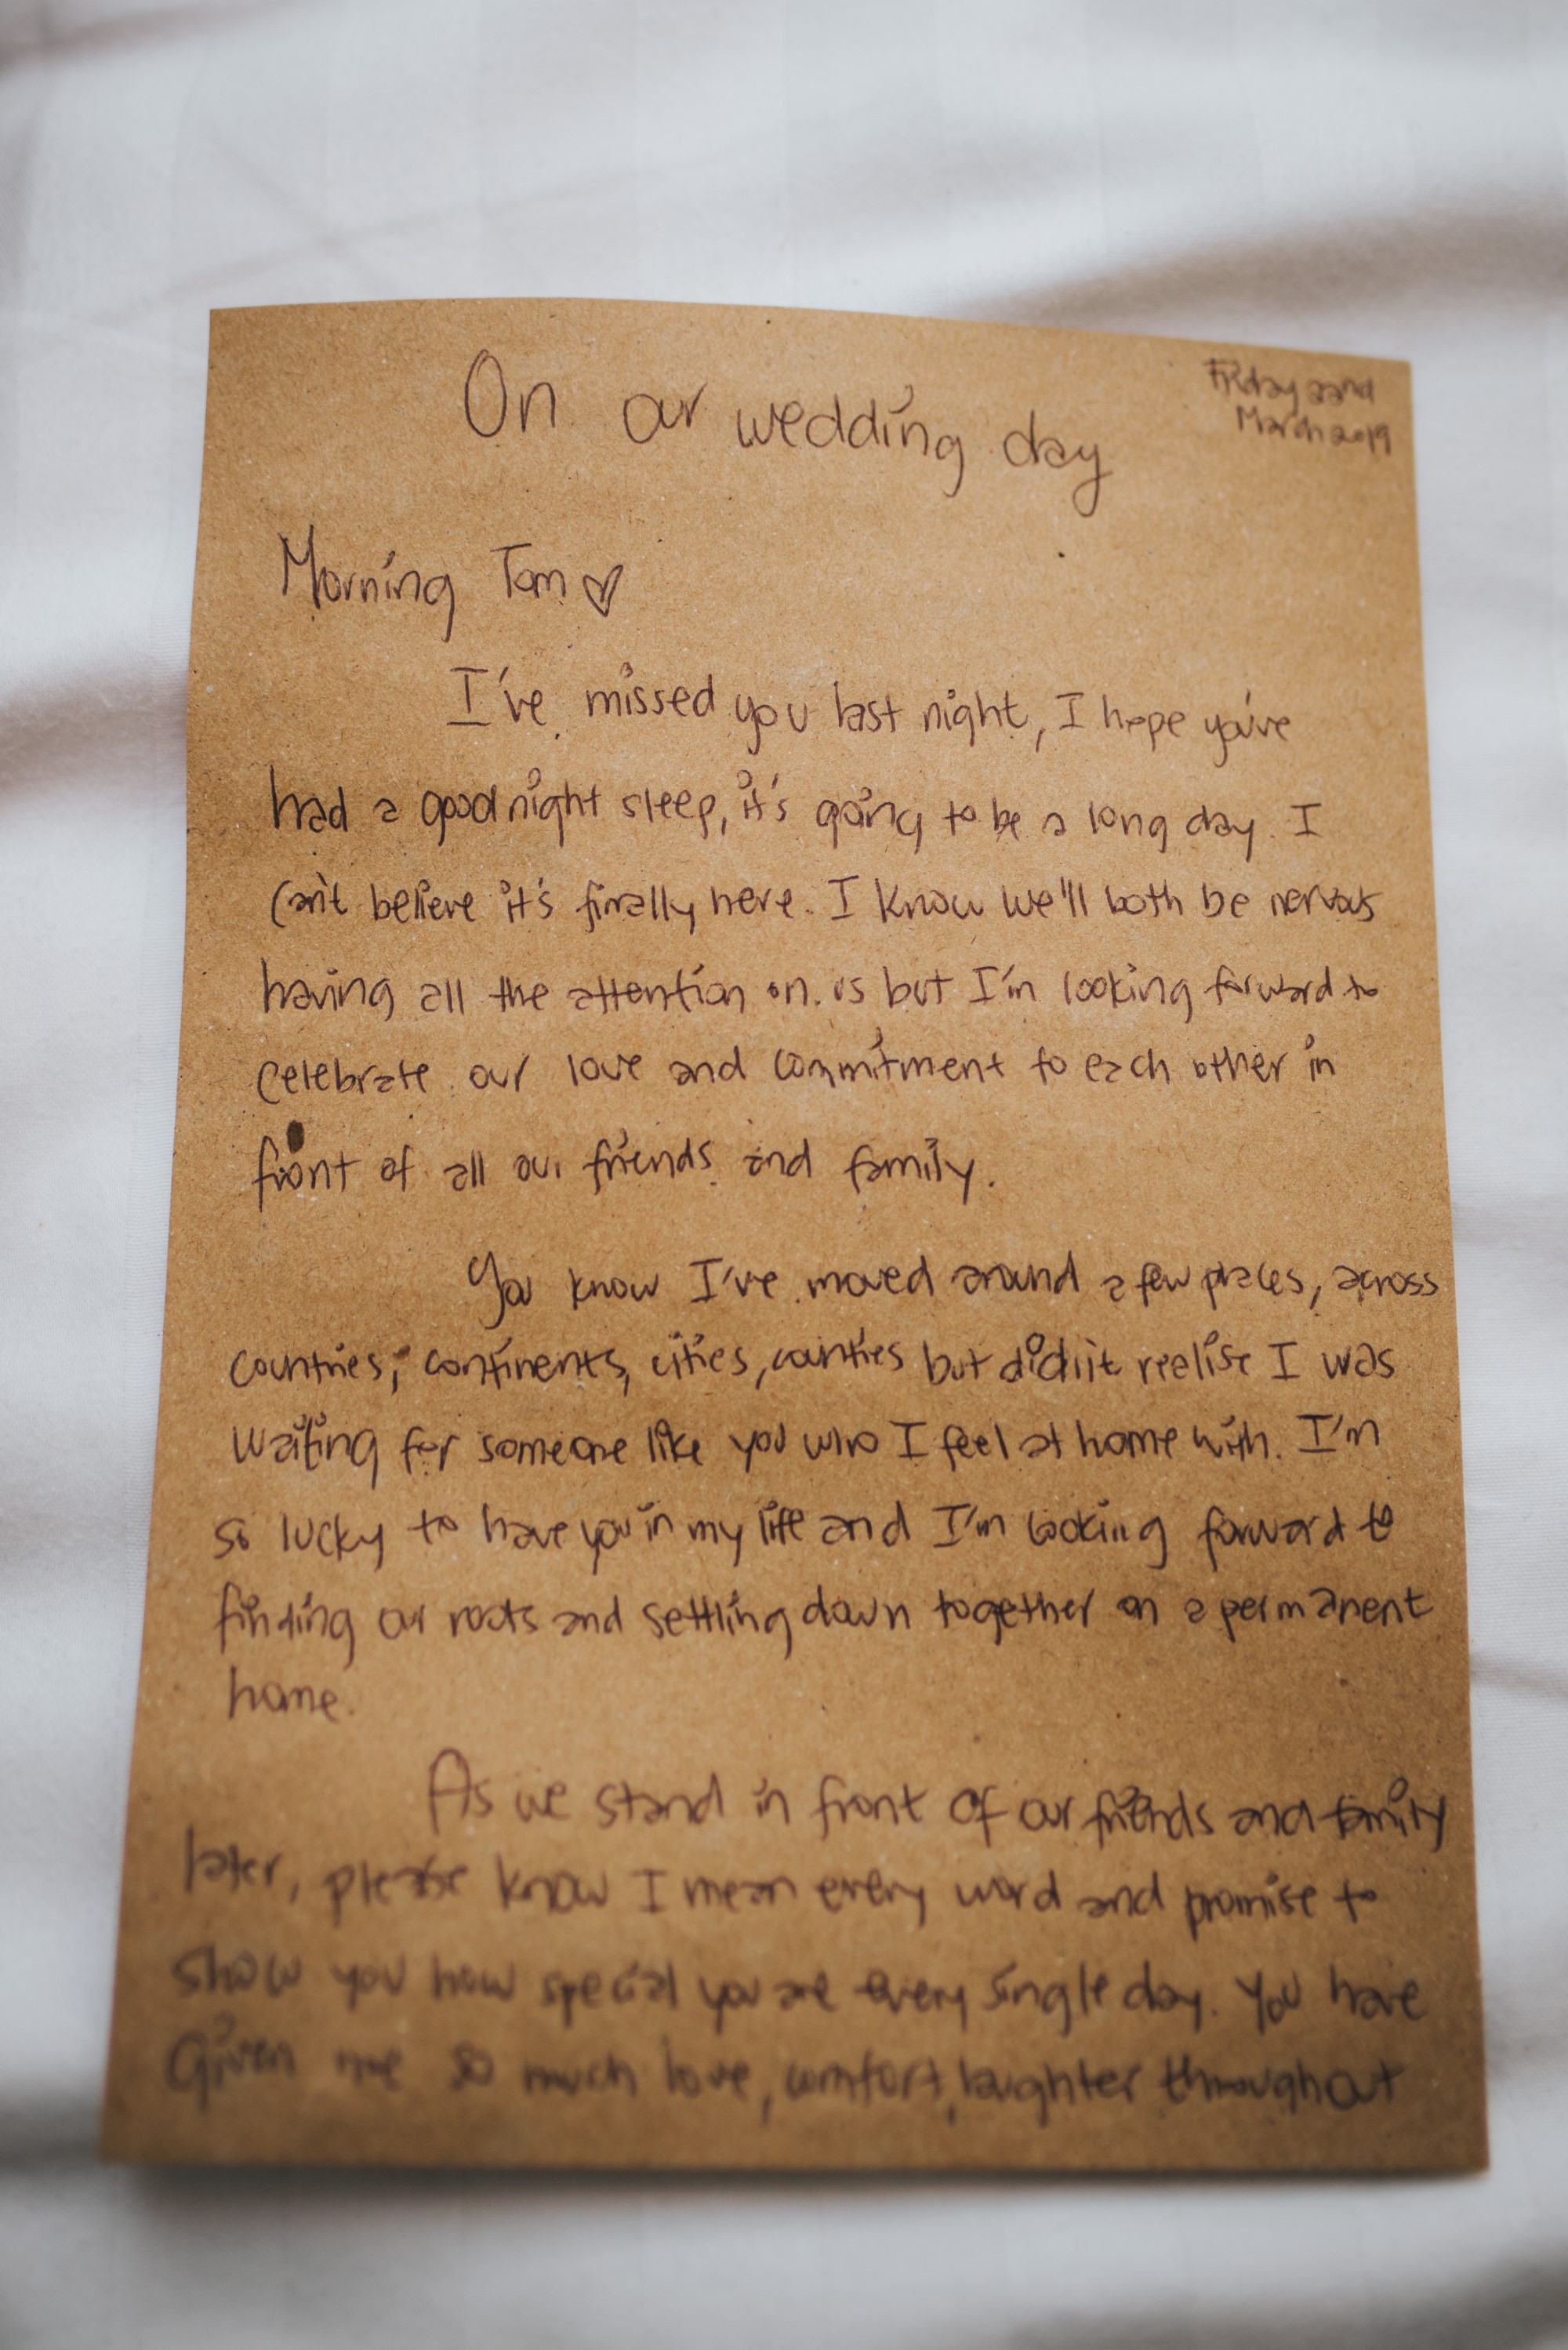 On our wedding day
Friday 22nd
March 2019
Morning Tom ♡
I've missed you last night, I hope you've
had a good night sleep, it's going to be a long day. I
can't believe it's finally here. I know we'll both be nervous
having all the attention on us but I'm looking forward to
celebrate our love and commitment to each other in
front of all our friends and family.
You know I've moved around a few places, across
countries, continents, cities, counties but didn't realise I was
waiting for someone like you who I feel at home with. I'm
so lucky to have you in my life and I'm looking forward to
finding our roots and settling down together on a permanent
home.
As we stand in front of our friends and family
later, please know I mean every word and promise to
show you how special you are every single day. You have
given me so much love, comfort, laughter throughout